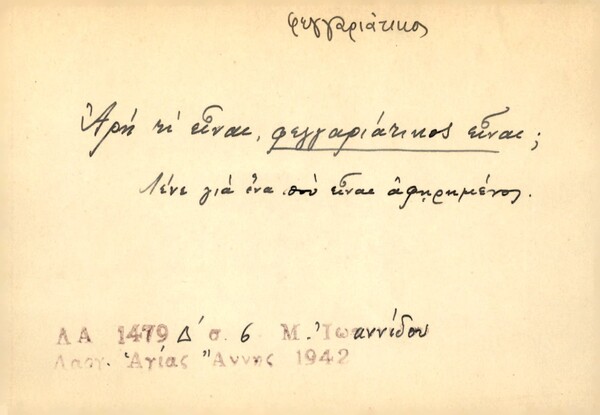 φεγγαριάτικος
Ἀρή τί εἶναι, φεγγαριάτικος εἶναι;
Λένε γιά ἕνα πού εἶναι ἀφηρημένος.
ΛΑ 1479 Δ΄ σ. 6 Μ. Ἰωαννίδου
Λαογ. Ἁγίας Ἄννης 1942